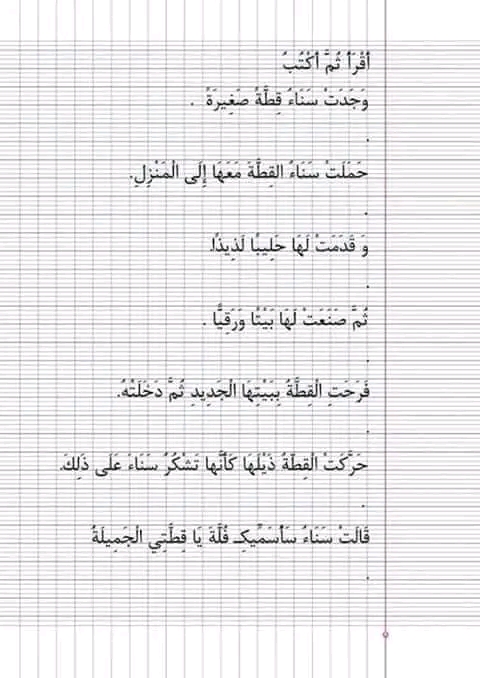 أَقْرَأُ ثُمَّ أَكْتُبُ
وَجَدَتْ سَنَاءُ قِطَّةً صَغِيرَةً .
.
حَمَلَتْ سَنَاءُ القِطَّةَ مَعَهَا إِلَى الْمَنْزِلِ.
.
وَ قَدَمَتْ لَهَا حَلِيبًا لَذِيذًا.
.
ثُمَّ صَنَعَتْ لَهَا بَيْتًا وَرَقِيًّا .
.
فَرَحَتِ الْقِطَّةُ بِبَيْتِهَا الْجَدِيدِ ثُمَّ دَخَلَتْهُ.
.
حَرَّكَتْ الْقِطَّةُ ذَيْلَهَا كَأَنَّها تَشْكُرُ سَنَاءَ عَلَى ذَلِكَ.
.
قَالَتْ سَنَاءُ سَأُسَمِّيكِـ فُلَّةَ يَا قِطَّتِي الْجَمِيلَةُ
.